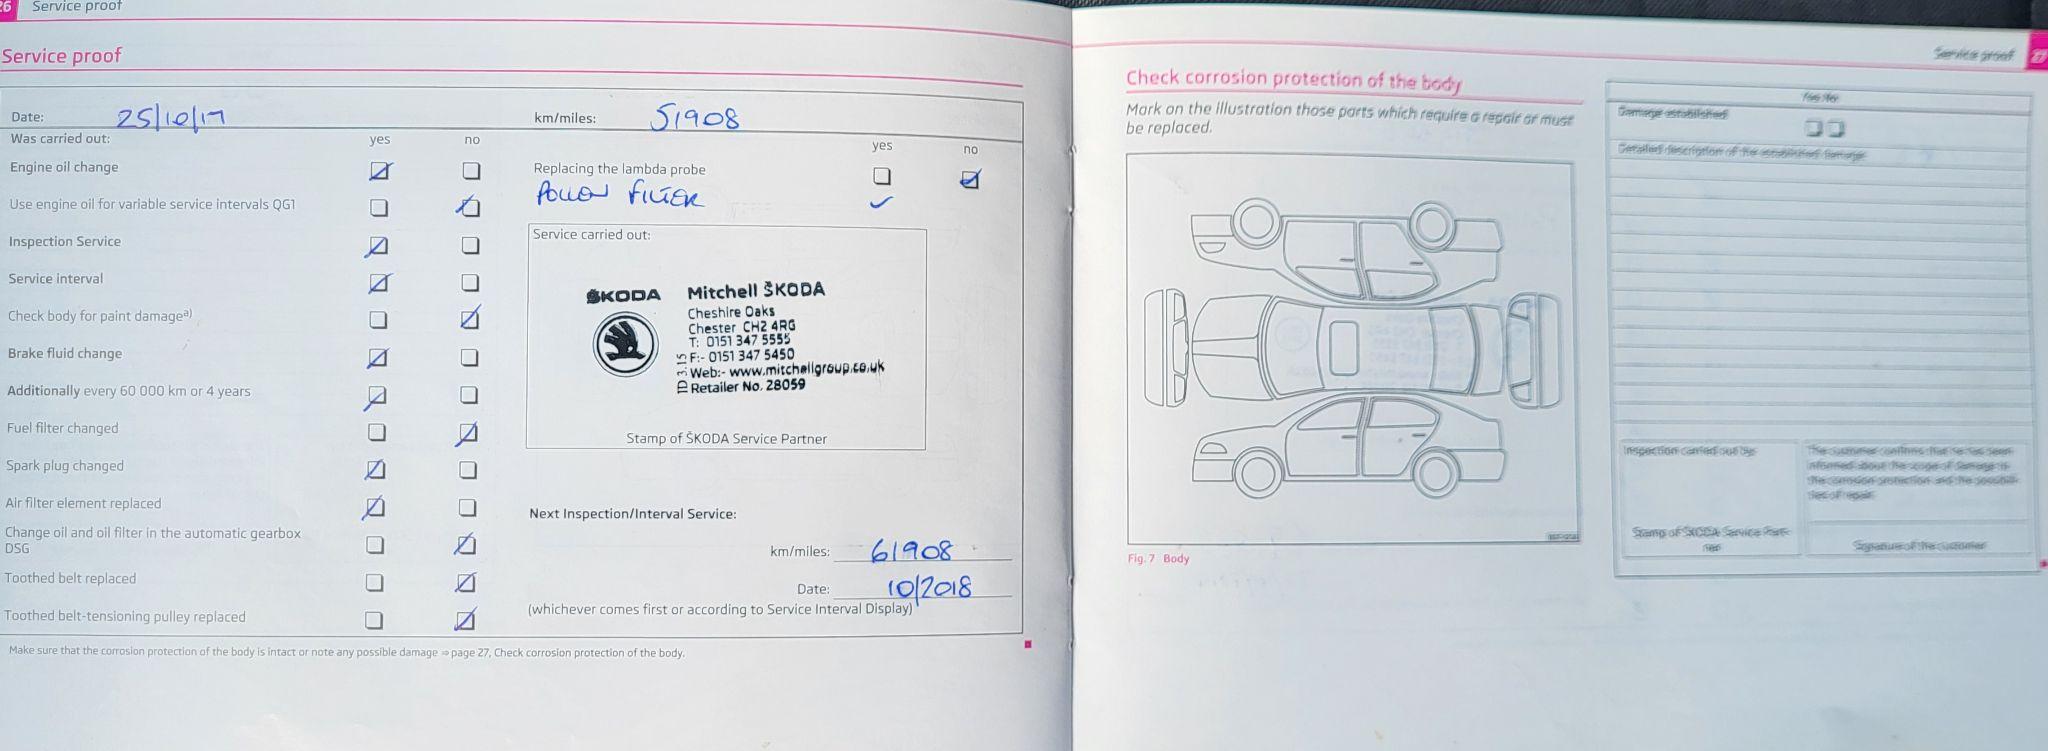 26 Service proof
Service proof
Date: 25/10/17 km/miles: 51908
Was carried out: yes no yes no
Engine oil change
Use engine oil for variable service intervals QG1
Inspection Service
Service interval
Check body for paint damageª⁾
Brake fluid change
Additionally every 60 000 km or 4 years
Fuel filter changed
Spark plug changed
Air filter element replaced
Change oil and oil filter in the automatic gearbox
DSG
Toothed belt replaced
Toothed belt-tensioning pulley replaced
Replacing the lambda probe
POLLEN FILTER
Service carried out:
ŠKODA Mitchell ŠKODA
Cheshire Oaks
Chester CH2 4RG
T: 0151 347 5555
F:- 0151 347 5450
Web:- www.mitchellgroup.co.uk
Retailer No. 28059
ID 3.15
Stamp of ŠKODA Service Partner
Next Inspection/Interval Service:
km/miles: 61908
Date: 10/2018
(whichever comes first or according to Service Interval Display)
Make sure that the corrosion protection of the body is intact or note any possible damage ⇒ page 27, Check corrosion protection of the body.
Service proof 27
Check corrosion protection of the body
Mark on the illustration those parts which require a repair or must
be replaced.
Fig. 7 Body
Yes No
Damage established
Detailed description of the established damage
Inspection carried out by:
Stamp of ŠKODA Service Part-
ner
The customer confirms that he has been
informed about the scope of damage to
the corrosion protection and the possibili-
ties of repair.
Signature of the customer